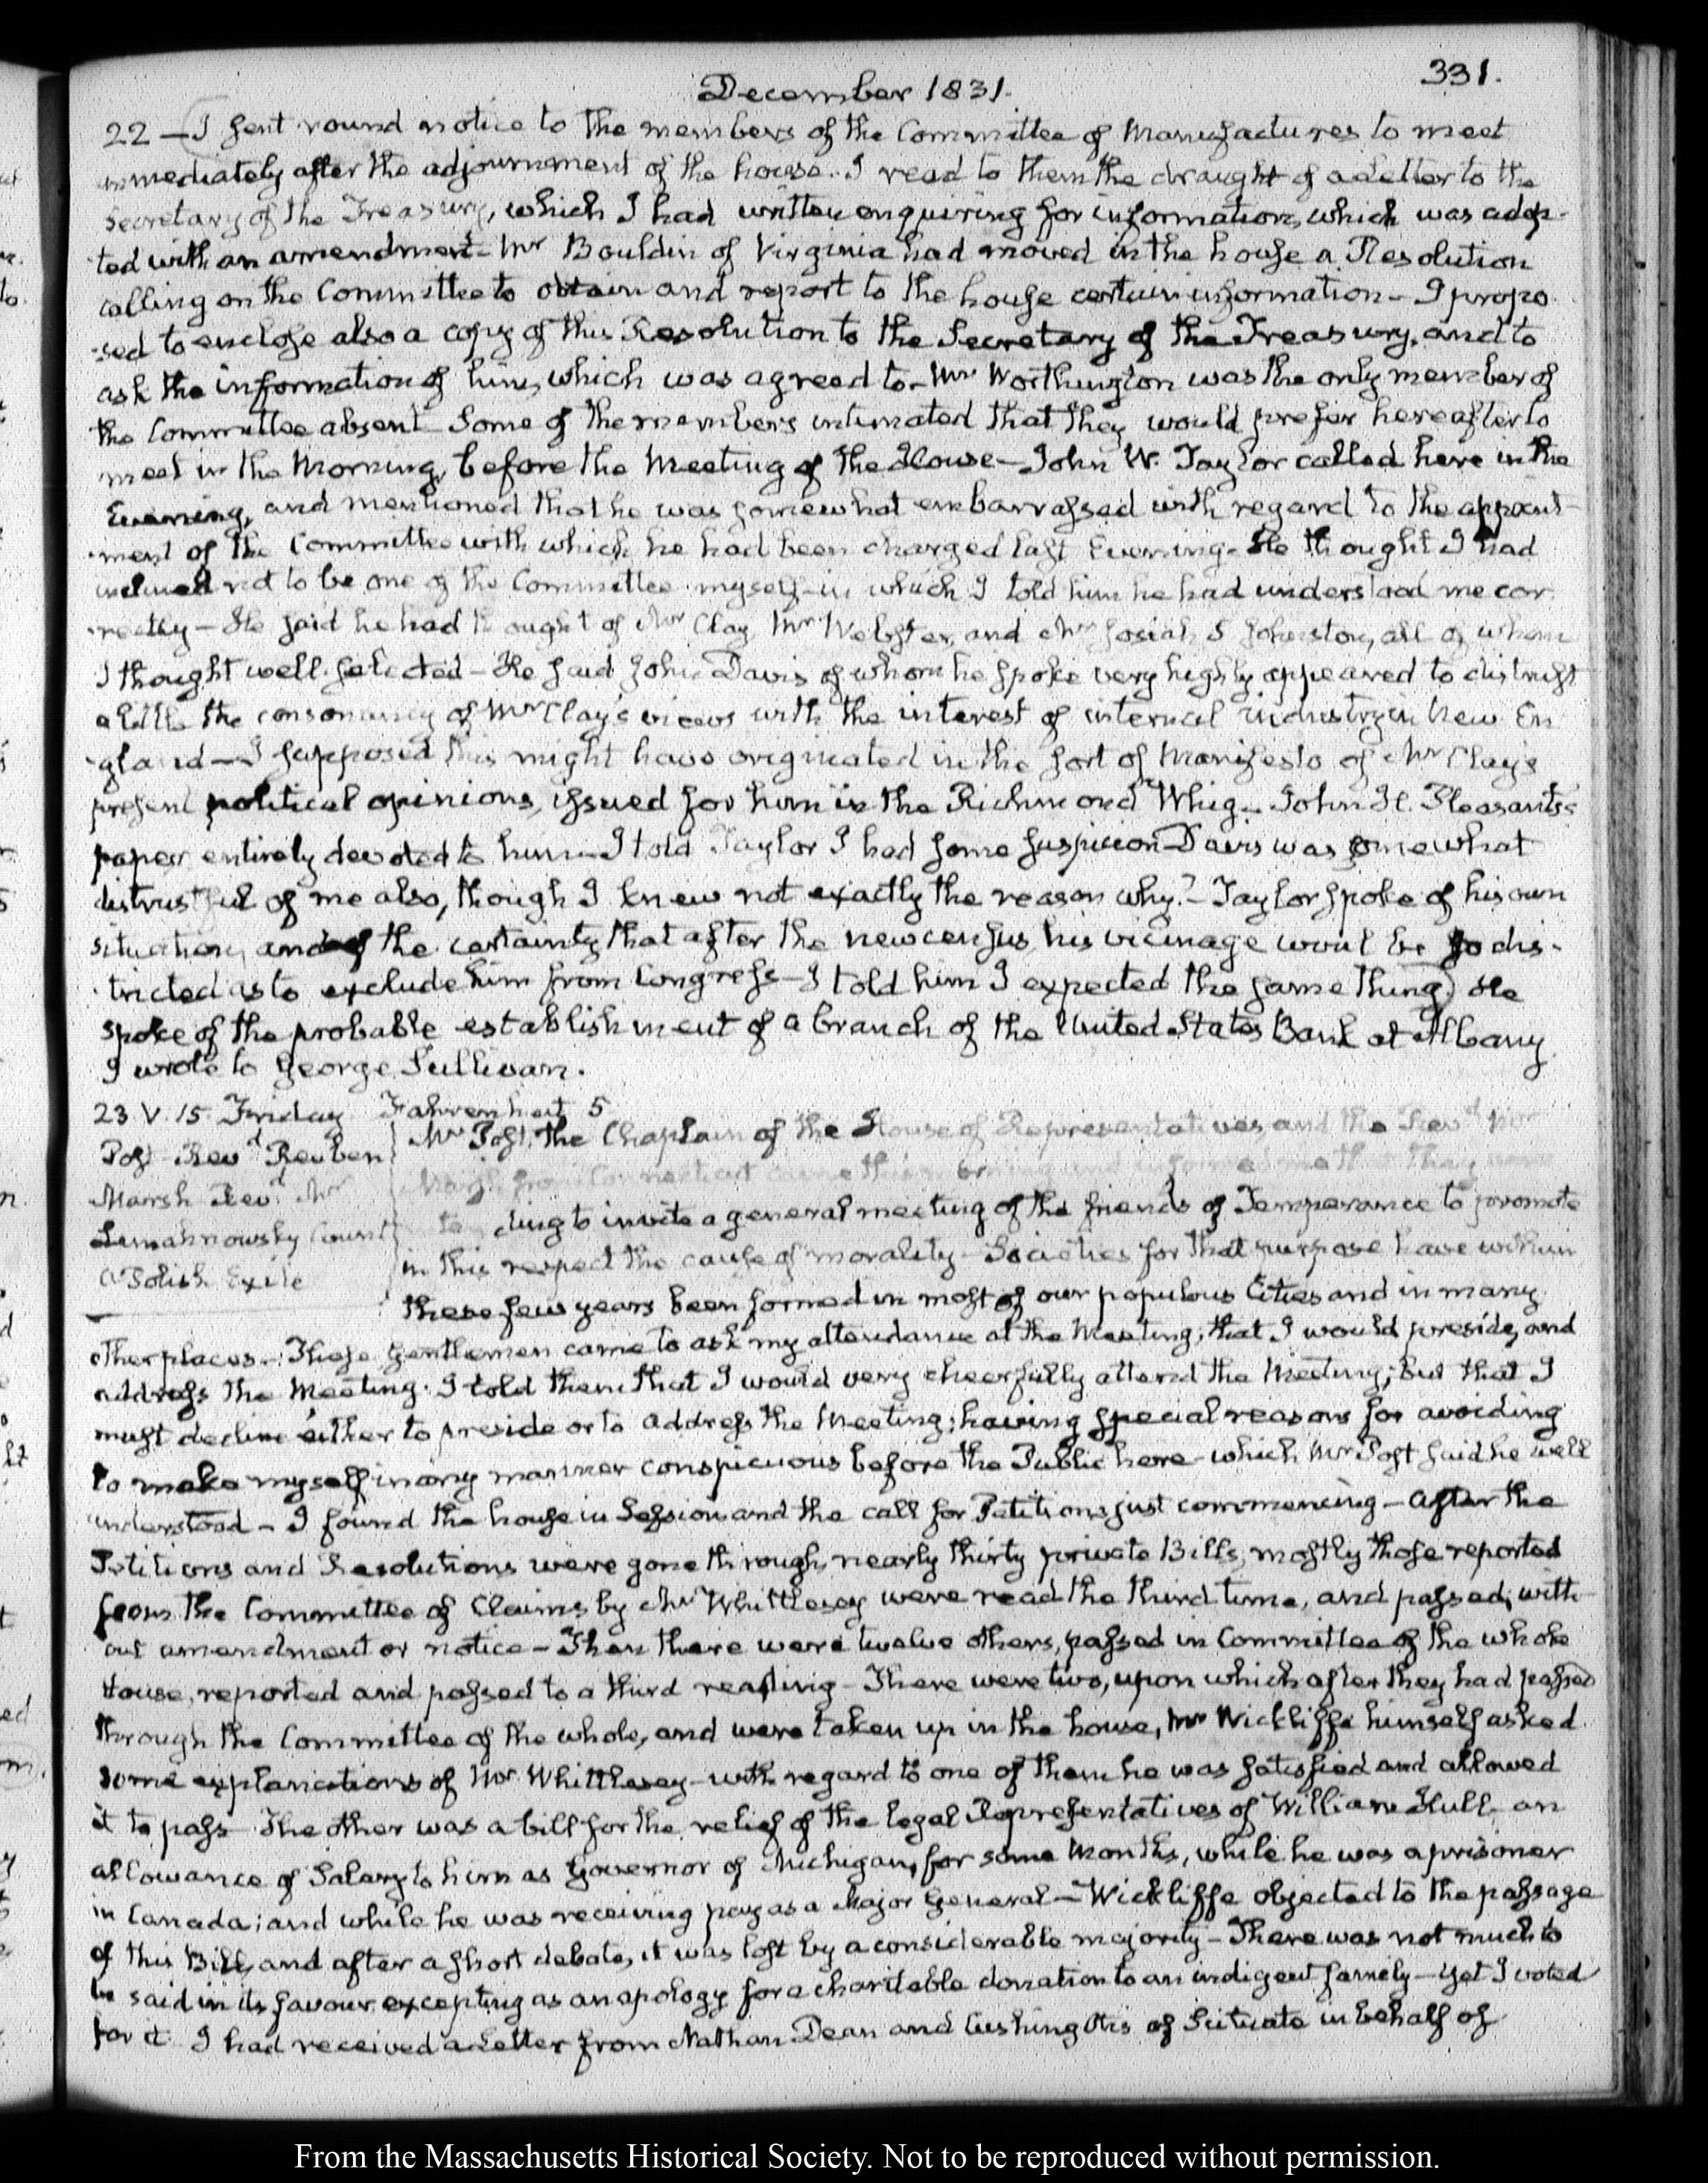 331.
December 1831.
22 — I sent round notice to the members of the Committee of Manufactures to meet
immediately after the adjournment of the house. I read to them the draught of a Letter to the
Secretary of the Treasury, which I had written enquiring for information, which was adop-
ted with an amendment— Mr Bouldin of Virginia had moved in the house a Resolution
calling on the Committee to obtain and report to the house certain information— I propo-
sed to enclose also a copy of this Resolution to the Secretary of the Treasury, and to
ask the information of him, which was agreed to— Mr Worthington was the only member of
the Committee absent— Some of the members intimated that they would prefer hereafter to
meet in the Morning, before the Meeting of the House— John W. Taylor called here in the
Evening, and mentioned that he was somewhat embarrassed with regard to the appoint-
ment of the Committee with which he had been charged last Evening— He thought I had
inclined not to be one of the Committee myself— in which I told him he had understood me cor-
rectly— He said he had thought of Mr Clay, Mr Webster, and Mr Josiah S Johnston, all of whom
I thought well selected— He said John Davis of whom he spoke very highly appeared to distrust
a little the consonancy of Mr Clay's views with the interest of internal industry in New En-
gland— I supposed this might have originated in the sort of Manifesto of Mr Clay's
present political opinions, issued for him in the Richmond Whig— John H. Pleasants's
paper, entirely devoted to him— I told Taylor I had some suspicion Davis was somewhat
distrustful of me also, though I knew not exactly the reason why?— Taylor spoke of his own
situation, and of the certainty that after the new census, his vicinage would be so dis-
tricted as to exclude him from Congress— I told him I expected the same thing) He
spoke of the probable establishment of a branch of the United States Bank at Albany
I wrote to George Sullivan.
23. V. 15. Friday Fahrenheit 5
Post Revd. Reuben
Marsh Revd. Mr
Lemahnowsky Count
a Polish Exile
Mr Post, the Chaplain of the House of Representatives and the Revd. Mr
Marsh from Connecticut came this morning and informed me that they were
ding to invite a general meeting of the friends of Temperance to promote
in this respect the cause of morality— Societies for that purpose have within
these few years been formed in most of our populous Cities and in many
other places— These Gentlemen came to ask my attendance at the Meeting; that I would preside, and
address the Meeting. I told them that I would very cheerfully attend the Meeting; but that I
must decline either to preside or to address the Meeting; having special reasons for avoiding
to make myself in any manner conspicuous before the Public here— which Mr Post said he well
understood— I found the house in Session and the call for Petitions just commencing— After the
Petitions and Resolutions were gone through, nearly thirty private Bills, mostly those reported
from the Committee of Claims by Mr Whittlesey were read the third time, and passed, with-
out amendment or notice— Then there were twelve others, passed in Committee of the whole
House, reported and passed to a third reading— There were two, upon which after they had passed
through the Committee of the whole, and were taken up in the house, Mr Wickliffe himself asked
some explanations of Mr. Whittlesey— with regard to one of them he was satisfied and allowed
it to pass— The other was a bill for the relief of the legal Representatives of William Hull— an
allowance of Salary to him as Governor of Michigan, for some Months, while he was a prisoner
in Canada; and while he was receiving pay as a Major General— Wickliffe objected to the passage
of this Bill, and after a short debate, it was lost by a considerable majority— There was not much to
be said in its favour, excepting as an apology for a charitable donation to an indigent family— yet I voted
for it. I had received a Letter from Nathan Dean and Cushing Otis of Scituate in behalf of
From the Massachusetts Historical Society. Not to be reproduced without permission.